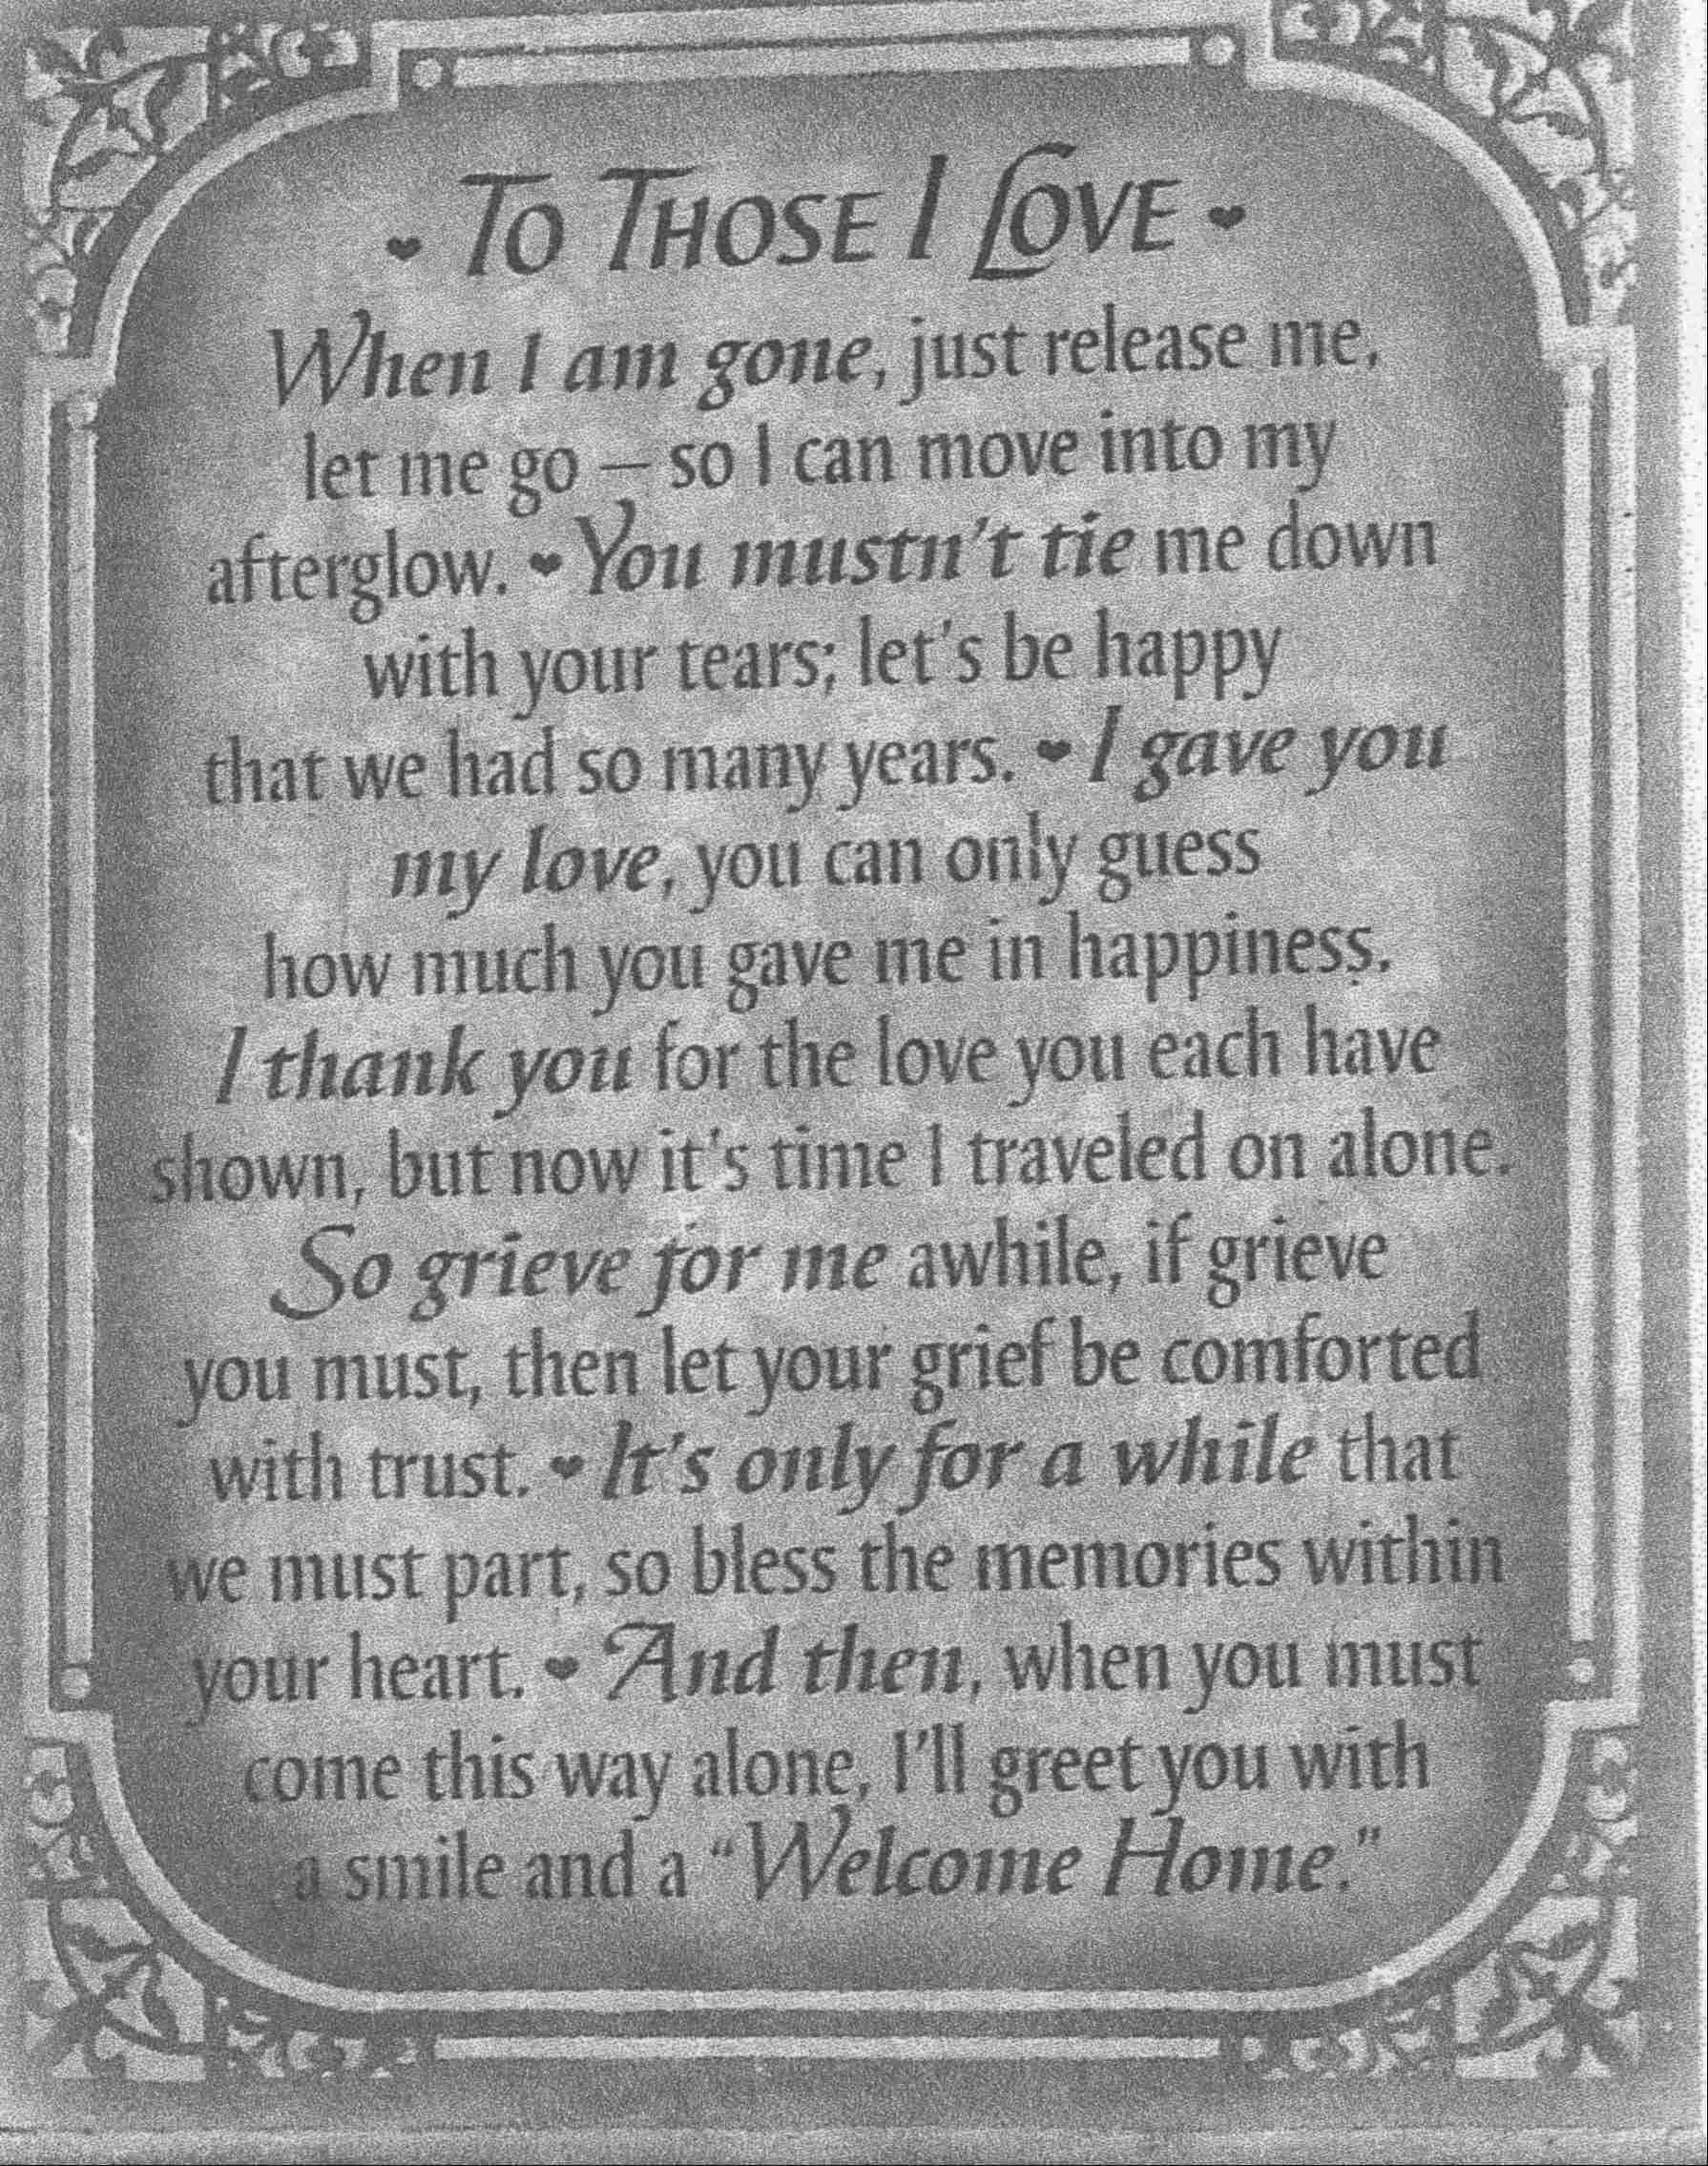 ♥ TO THOSE I LOVE ♥
When I am gone, just release me,
let me go – so I can move into my
afterglow. ♥ You mustn't tie me down
with your tears; let's be happy
that we had so many years. ♥ I gave you
my love, you can only guess
how much you gave me in happiness.
I thank you for the love you each have
shown, but now it's time I traveled on alone.
So grieve for me awhile, if grieve
you must, then let your grief be comforted
with trust. ♥ It's only for a while that
we must part, so bless the memories within
your heart. ♥ And then, when you must
come this way alone, I'll greet you with
a smile and a “Welcome Home.”